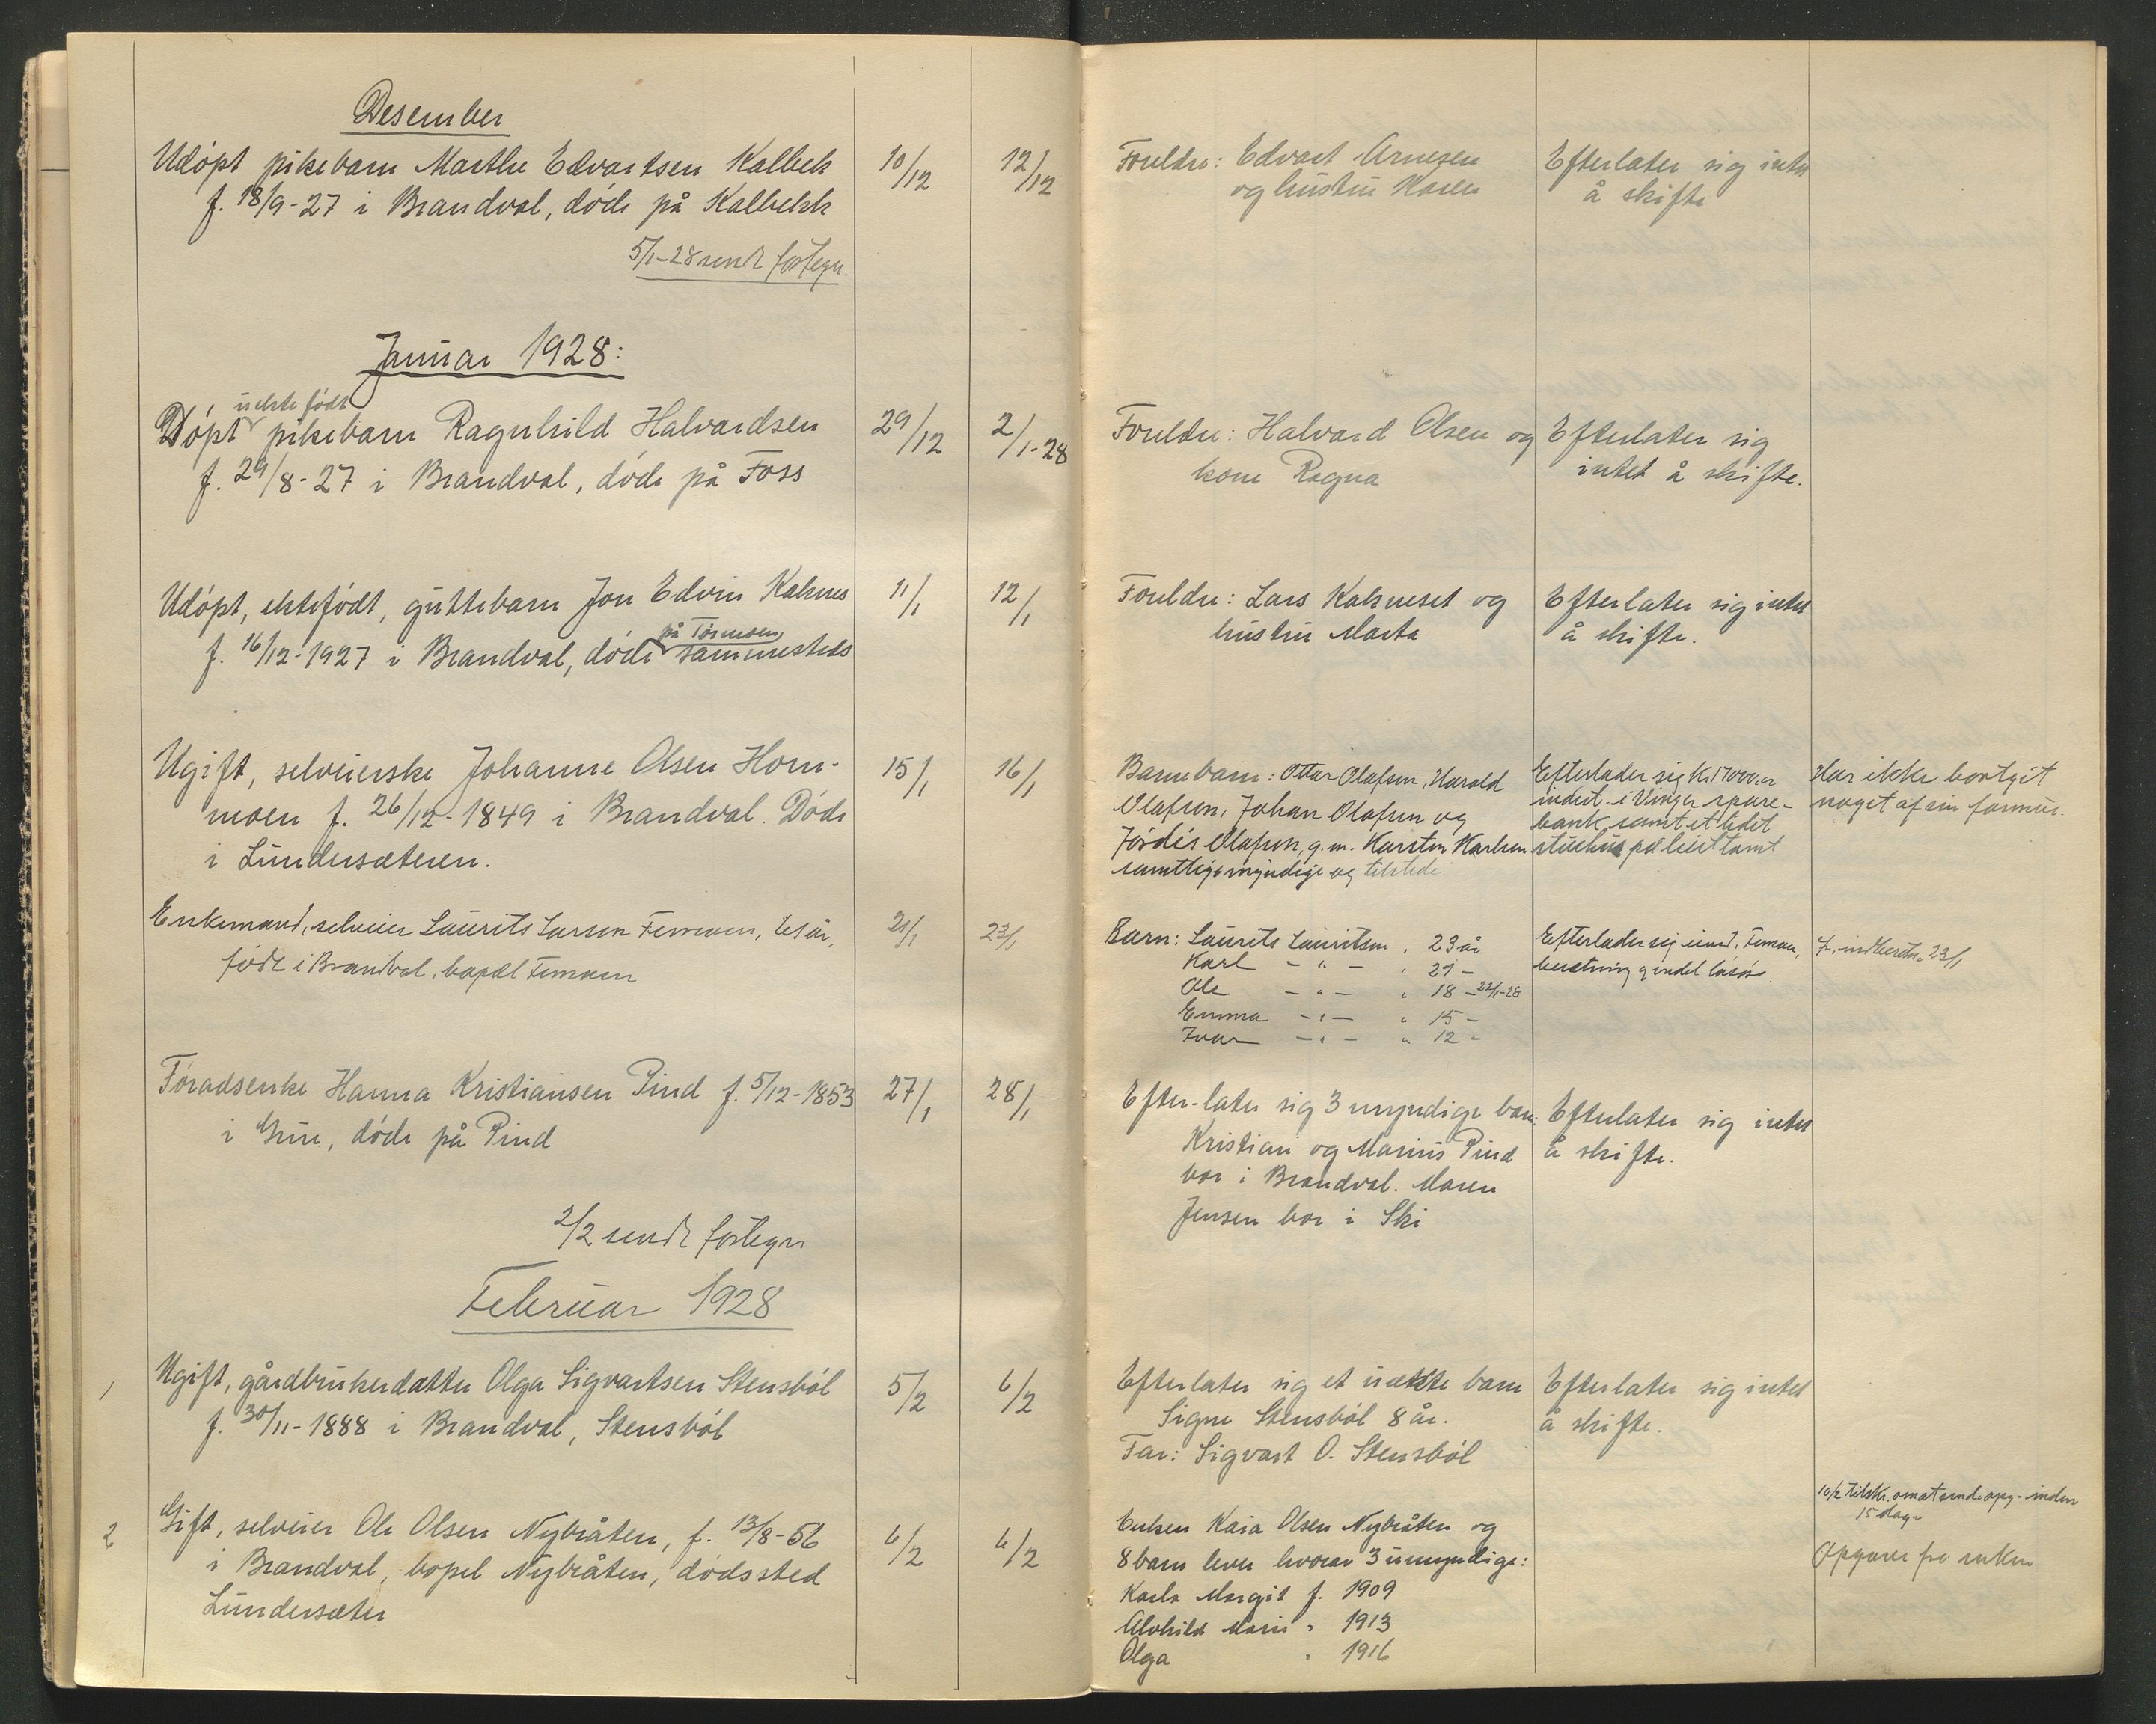 Desember
Udöpt pikebarn Marthe Edvartsen Kalbek 10/12 12/12 Foreldre: Edvart Arnesen Efterlater sig intet
f. 18/9-27 i Brandval, döde på Kalbekk og hustru Karen å skifte
5/1-28 sendt fortegn.
Januar 1928:
uekte födt
Döpt pikebarn Ragnhild Halvardsen 29/12 2/1-28 Foreldre: Halvard Olsen og Efterlater sig
f. 29/8-27 i Brandval, döde på Foss kone Ragna intet å skifte.
Udöpt, ektefödt, guttebarn Jon Edvin Kalnes 11/1 12/1 Foreldre: Lars Kalneset og Efterlater sig intet
på Törmoen
f. 16/12-1927 i Brandval, döde sammesteds hustru Marta å skifte.
Ugift, selveierske Johanne Olsen Hom- 15/1 16/1 Barnebarn: Ottar Olafsen, Harald Efterlader sig Kr. 1700 er Har ikke bortgit
moen f. 26/12-1849 i Brandval. Döde Olafsen, Johan Olafsen og indest. i Vinger spare- noget af sin formue.
i Lundersæteren. Jördis Olafsen, g.m. Karsten Karlsen bank samt et lidet
samtlige myndige og tilstede stuehus på leiet tomt
Enkemand, selveier Laurits Larsen Femoen, 61 år, 21/1 23/1 Barn: Laurits Lauritsen, 23 år Efterlader sig eiend. Femoen,
födt i Brandval, bopæl Femoen Karl - " - , 21 - besetning og endel lösöre 23/1
Ole - " - " 18 - 22/1-28
Emma - " - " 15 -
Ivar - " - " 12 -
Föradsenke Hanna Kristiansen Pind f. 5/12-1853 27/1 28/1 Efter-later sig 3 myndige barn: Efterlater sig intet
i Grue, döde på Pind Kristian og Marius Pind å skifte.
bor i Brandval. Maren
Jensen bor i Ski
2/2 sendt fortegn
Februar 1928
1 Ugift, gårdbrukerdatter Olga Sigvartsen Stensböl 5/2 6/2 Efterlater sig et uækte barn Efterlater sig intet
f. 30/11-1888 i Brandval, Stensböl Signe Stensböl 8 år. å skifte.
Far: Sigvart O. Stensböl
10/2 tilskr. om at sende opg. inden
15 dage
2 Gift, selveier Ole Olsen Nybråten, f. 13/8-56 6/2 6/2 Enken Kaia Olsen Nybråten og
i Brandval, bopel Nybråten, dödssted 8 barn lever hvorav 3 umyndige: Opgaver fra enken
Lundersæter Karla Margit f. 1909
Alvhild Marie " 1913
Olga " 1916